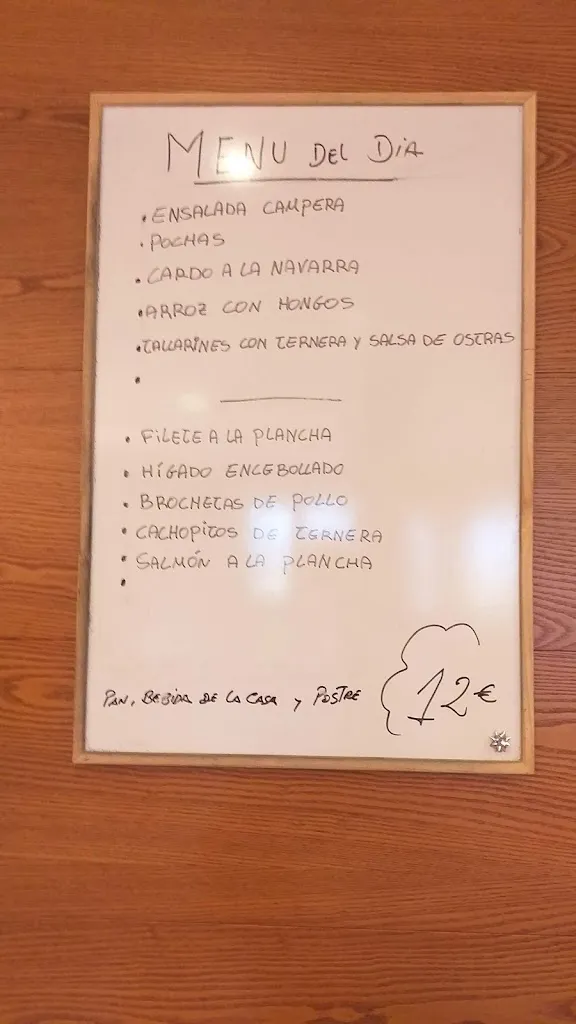 MENU DEL DIA
• ENSALADA CAMPERA
• POCHAS
• CARDO A LA NAVARRA
• ARROZ CON HONGOS
• TALLARINES CON TERNERA Y SALSA DE OSTRAS
•
• FILETE A LA PLANCHA
• HÍGADO ENCEBOLLADO
• BROCHETAS DE POLLO
• CACHOPITOS DE TERNERA
• SALMÓN A LA PLANCHA
•
PAN, BEBIDA DE LA CASA Y POSTRE 12€